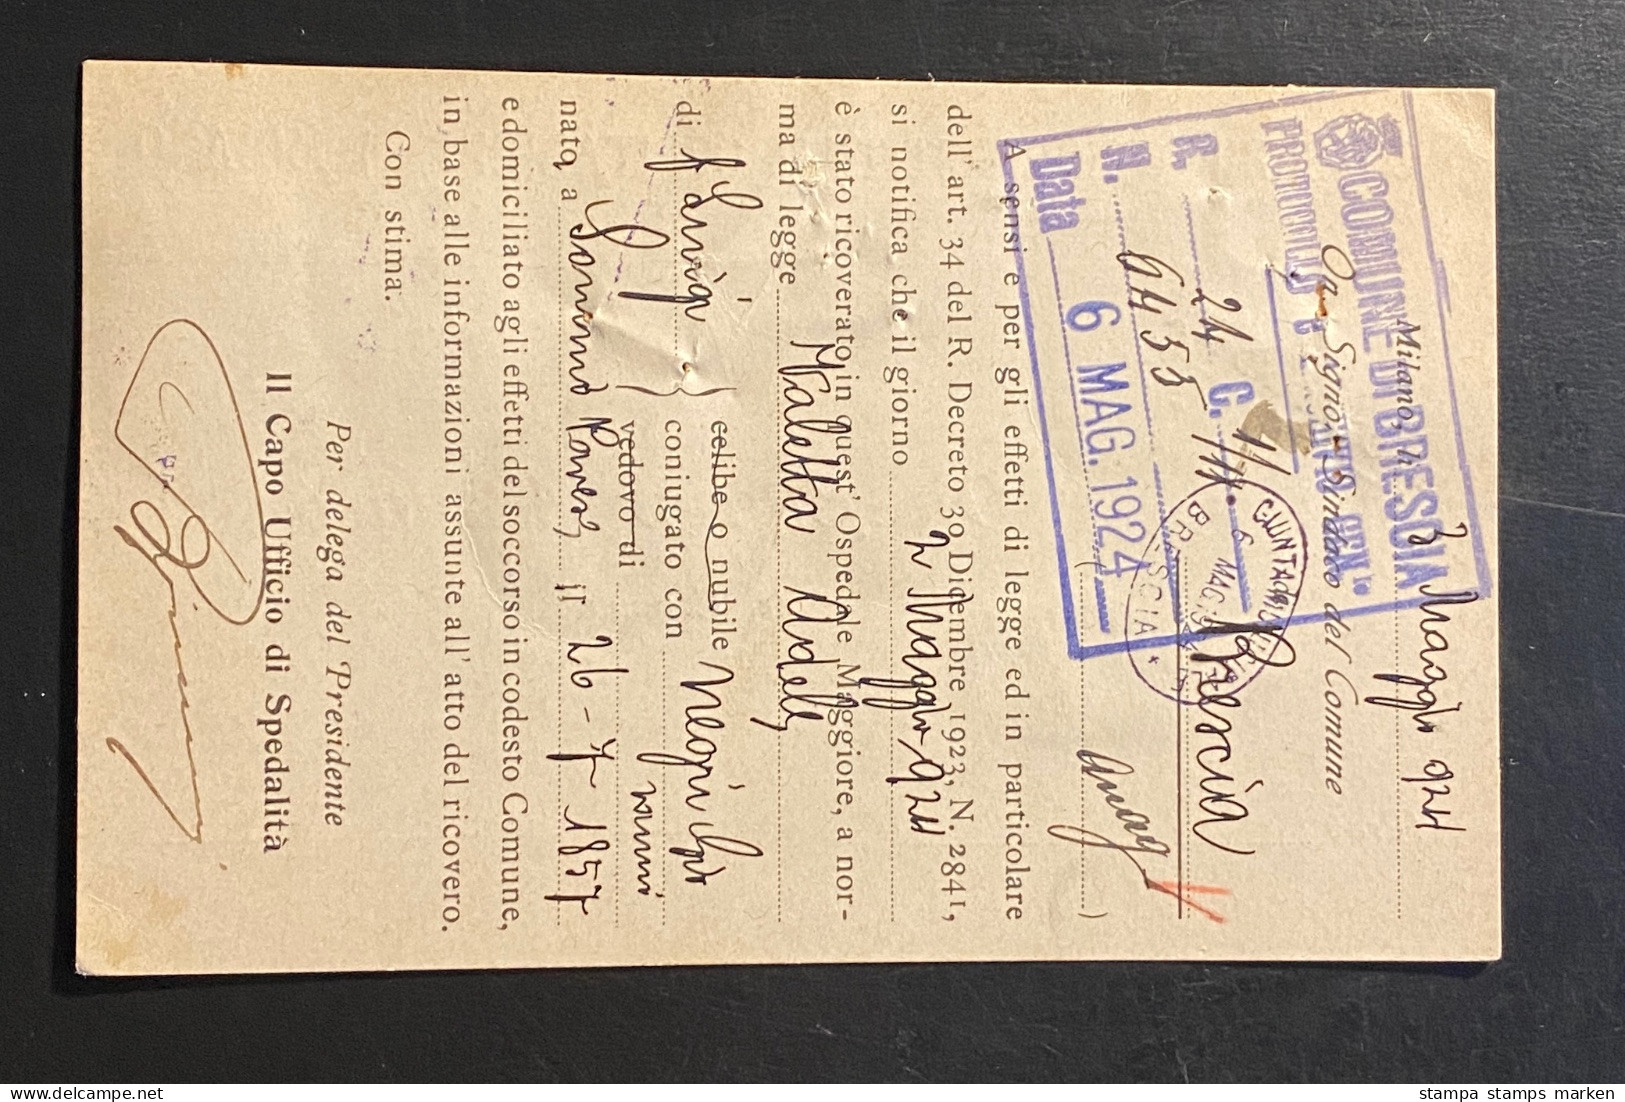 Milano, li 3 Maggio 924
On. Signor Sindaco del Comune
Brescia
COMUNE DI BRESCIA
R. 24 C.
N. 6455
Data 6 MAG. 1924
BRESCIA
6 MAG
A sensi e per gli effetti di legge ed in particolare
dell' art. 34 del R. Decreto 30 Dicembre 1923, N. 2841,
si notifica che il giorno 2 Maggio 924
è stato ricoverato in quest' Ospedale Maggiore, a nor-
ma di legge Maletta Adele
di f Luigi
celibe o nubile
coniugato con
vedovo di
Negri
nato a 26-7-1857
e domiciliato agli effetti del soccorso in codesto Comune,
in base alle informazioni assunte all' atto del ricovero.
Con stima.
Per delega del Presidente
Il Capo Ufficio di Spedalità
stampa stamps marken